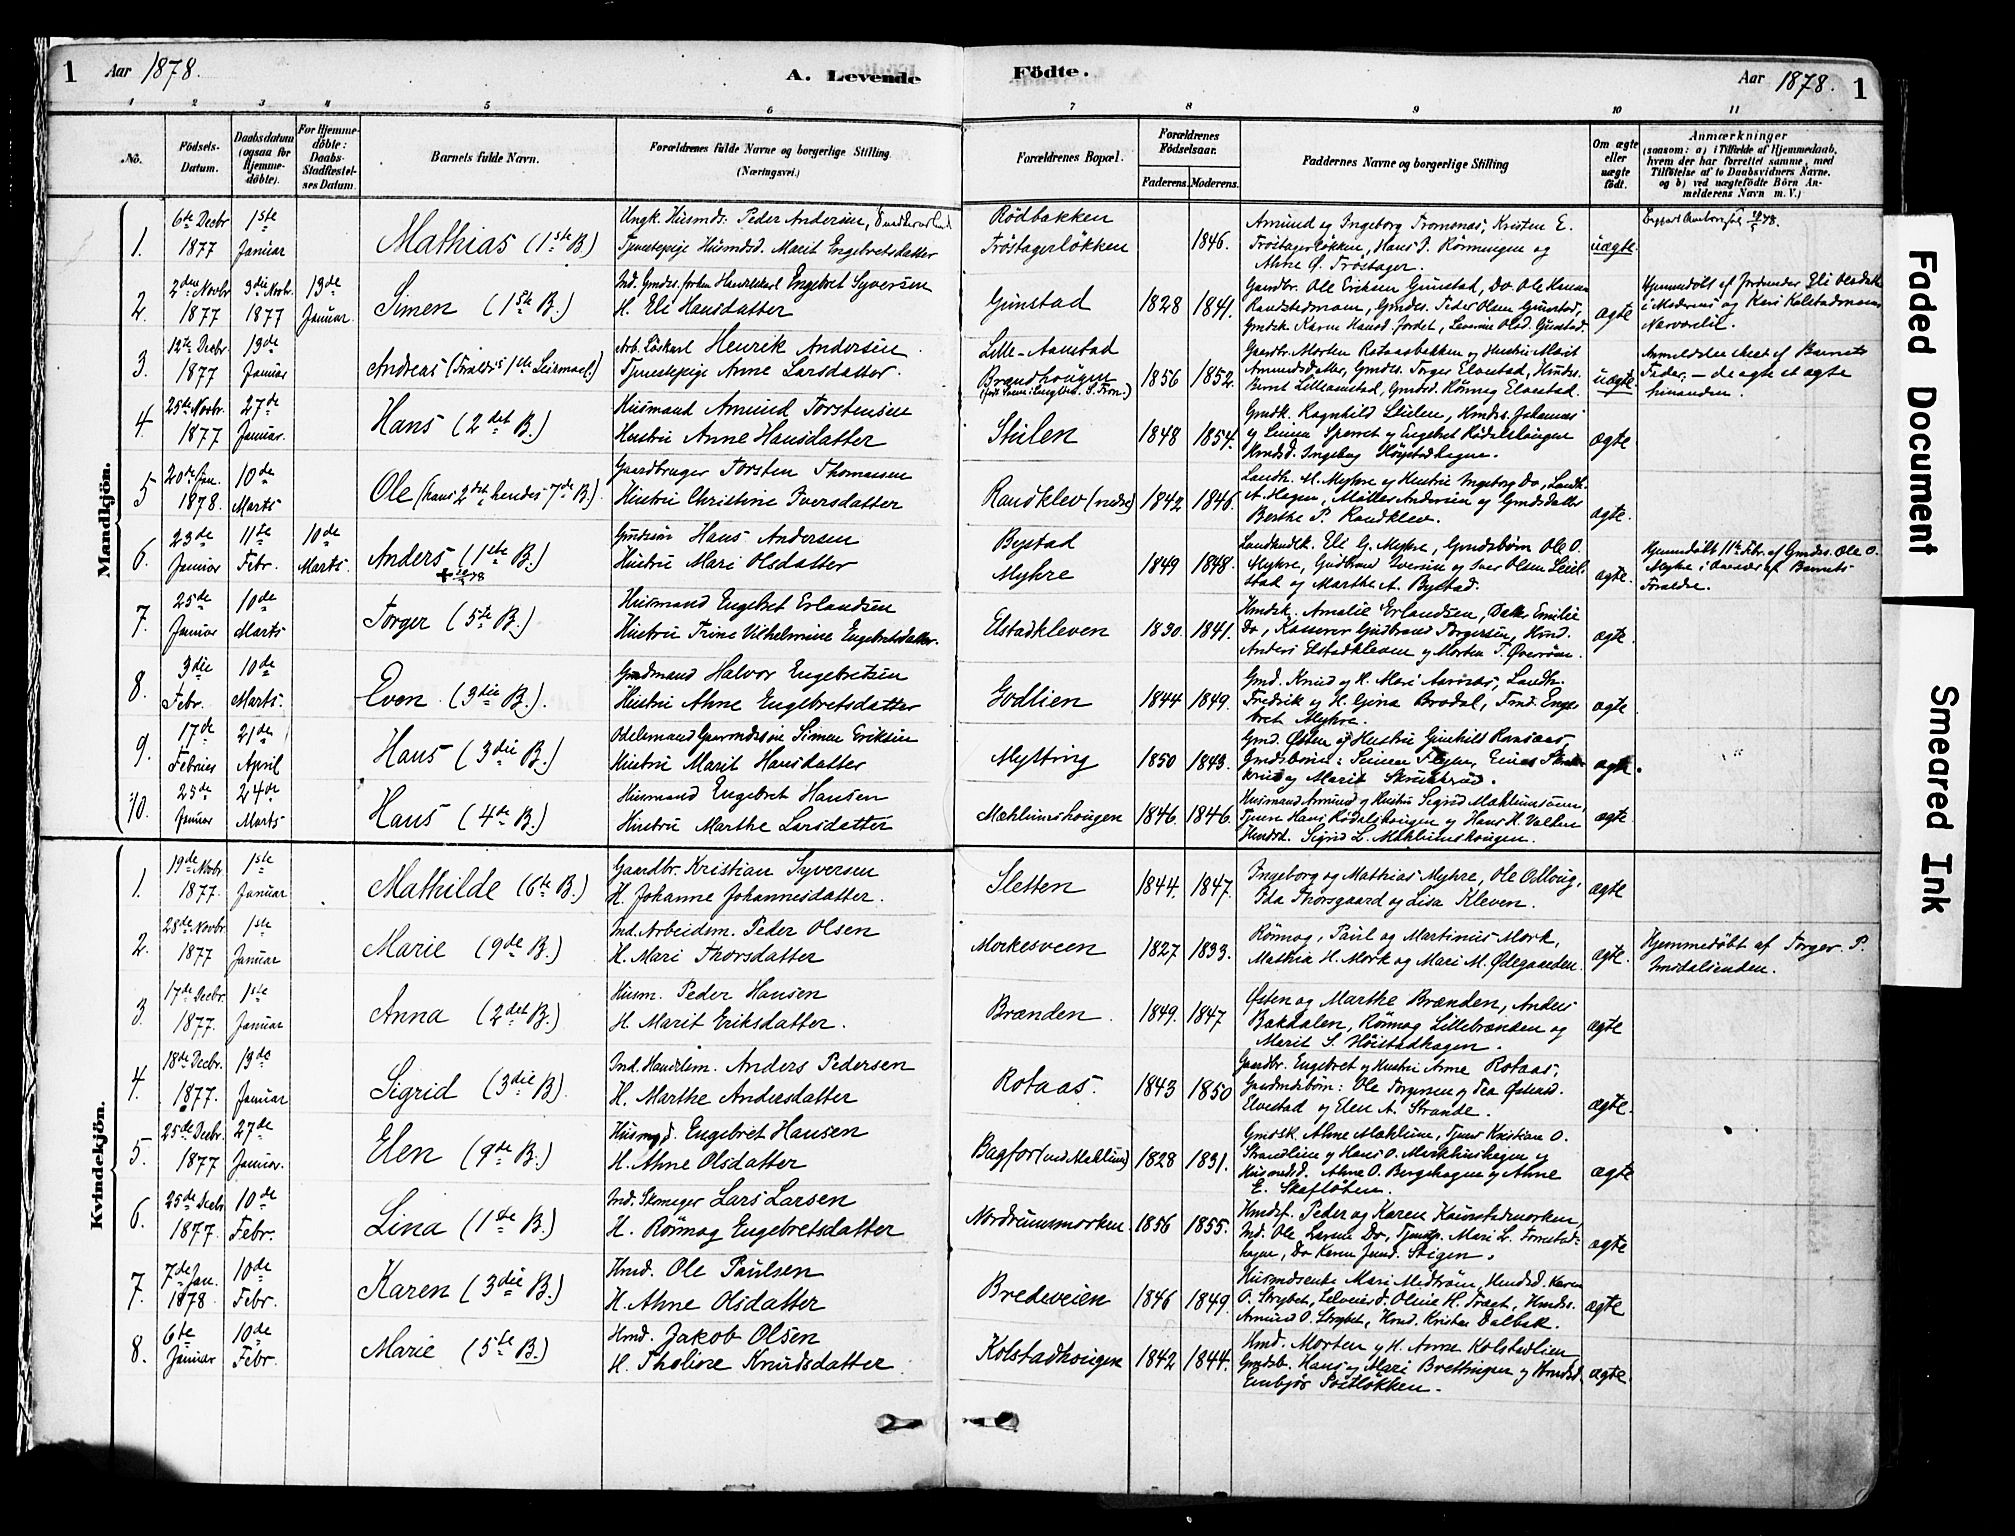 1 Aar 1878. A. Levende Födte. Aar 1878. 1
1 2 3 4 5 6 7 8 9 10 11
No.
Födsels-Datum.
Daabsdatum (ogsaa for Hjemme-döbte).
For Hjemme-döbte: Daabs-Stadfæstel-ses Datum.
Barnets fulde Navn.
Forældrenes fulde Navne og borgerlige Stilling. (Næringsvei.)
Forældrenes Bopæl.
Forældrenes Födselsaar.
Faderens. Moderens.
Faddernes Navne og borgerlige Stilling
Om ægte eller uægte födt.
Anmærkninger
(saasom: a) i Tilfælde af Hjemmedaab,
hvem der har forrettet samme, med
Tilföielse af to Daabsvidners Navne.
og b) ved uægtefödte Börn An-
melderens Navn m. V.)
Mandkjön.
1. 6te Decbr 1877 1ste Januar Mathias (1ste B.)
Ungk. Husmds. Peder Andersen,
Tjenestepige Husmdsd. Marit Engebretsdatter
Rödbakken
Tröstagerlökken 1846.
Amund og Ingeborg Tromsnæs, Kristen E.
Tröstagerlökken, Hans J. Rönningen og
Ahne O. Tröstager.
uægte
2. 2den Novbr 1877 3die Novbr. 1877 13de Januar. Simen (1ste B.)
Engebret Syversen
H. Eli Hansdatter
Gunstad 1828 1841.
Gaardbr. Ole Eriksen Gunstad, Do Ole Hansen
Randstadmoen, Gmdss. Peder Olsen Gunstad,
ægte
Hjemmedöbt af Jordmoder Eli Olsdatter
3. 12te Decbr. 1877 13de Januar Andreas (Foraldr's 1ste Leiermaal.)
Arb. Löskarl Henrik Andersen
Tjenestepige Anne Larsdatter.
Lille-Aanstad
Brandhougen 1856 1852.
Gaardbr. Morten Rotaasbakken og Hustru Marit
Amundsdatter, Gmdss. Torger Elvestad, Husmds.
Bernt Lilleaanstad, Gmdsd. Rönnog Elvestad.
uægte
Anmeldelse skeet af Barnets
Fader, – de agte at ægte
hinanden.
4. 25de Novbr. 1877 27de Januar. Hans (2det B.)
Husmand Amund Torstensen
Hustru Anne Hansdatter
Stulen 1848 1854.
ægte
5 20de Jan. 1878. 10de Marts Ole (hans 2det hendes 7de B.)
Gaardbruger Torsten Thomassen
Hustru Christine Iversdatter
Randklev (nedre) 1842 1846.
Landh. M. Myhre og Hustru Ingeborg Do, Landh.
A. Hagen, Möller Andersen og Gmdsdatter
Berthe P. Randklev.
ægte.
6. 23de Januar 11te Febr. 10de Marts. Anders (1ste B.)
Hans Andersen
Hustru Mari Olsdatter
Bystad
Myhre 1849 1848.
Eli G. Myhre, Gmdsbörn Ole O.
Myhre, Gudbrand Iversen og Iver Olsen
og Marthe A. Bystad.
ægte.
Hjemmedöbt 11te Febr. af Gmdss. Ole O.
Myhre i Overvær af Barnets
Forældre.
7. 25de Januar 10de Marts Torger (5te B.)
Husmand Engebret Erlandsen
Hustru Trine Vilhelmine Engebretsdatter.
Elstadkleven 1830. 1841.
Hmdsk. Amalie Erlandsen, Datter Emilie
Do, Kasserer Gudbrand Torgersen, Hmd.
Anders Elstadkleven og Morten T. Överröm.
ægte.
8. 3die Febr. 10de Marts. Even (3die B.).
Gmdmand Halvor Engebretsen
Hustru Ahne Engebretsdatter
Godlien 1844 1849.
Gmd. Knud og H. Mari Aarnæs, Landh.
Fredrik og H. Gina Brodal, Enge-
bret Myhre.
ægte.
9. 17de Februar 21de April Hans (3die B.)
Simen Eriksen
Hustru Marit Hansdatter
Mytting 1850 1843.
Gmd. Østen og Hustru Gunhild Ransaas,
og Marit Skrukkrud.
ægte.
10. 25de Januar 24de Marts Hans (4de B.)
Husmand Engebret Hansen
Hustru Marthe Larsdatter
Mæhlumshougen 1846. 1846.
Husmand Amund og Hustru Sigrid Mæhlumsöen,
Tjener Hans Rödalshougen og Hans H. Valken
Hmdsd. Sigrid L. Mæhlumshougen.
ægte.
Kvindekjön.
1. 19de Novbr. 1877. 1ste Januar Mathilde (6te B.)
Gaardbr. Kristian Syversen
H. Johanne Johannesdatter.
Sletten 1844. 1847.
Ingeborg og Mathias Myhre, Ole Odlaug,
Ida Thorsgaard og Lisa Kleven.
ægte
2. 28de Novbr. 1877 1ste Januar Marie (9de B.)
Ind. Arbeidsm. Peder Olsen
H. Mari Thorsdatter
Morkesveen 1827 1833.
Rönnog, Paul og Martinus Mork,
Mathia H. Mork og Mari M. Ødegaarden.
ægte.
Hjemmedöbt af Torger P.
Imsdalsenden.
3 17de Decbr. 1877. 1ste Januar Anna (2det B.)
Husm. Peder Hansen
H. Marit Eriksdatter.
Brænden. 1849. 1847
Østen og Marthe Brænden, Anders
Bakdalen, Rönnog Lillebrænden og
Marit S. Höistadhagen.
ægte
4. 18de Decbr. 1877. 13de Januar Sigrid (3die B.)
Ind. Handelsm. Anders Pedersen
H. Marthe Andersdatter
Rotaas. 1843 1850
Gaardbr. Engebret og Hustru Anne Rotaas,
Gaardmdsbörn: Ole Torgersen og Tea Østensd.
Elvestad og Elen A. Strande.
ægte.
5. 25de Decbr. 1877 27de Januar. Elen (9de B.)
Engebret Hansen
H. Ahne Olsdatter
Bagfor (ved Mæhlum) 1828 1831.
Gmdsk. Ahne Mæhlum, Tjener Kristian O.
Strandlien og Hans O.
Husmdsd. Ahne O. Bergehagen og Ahne
E. Skaflöten.
ægte
6. 25de Decbr 1877. 10de Febr. Lina (1ste B.)
Ind. Skomager Lars Larsen
H. Rönnog Engebretsdatter
Nordrumsmorken. 1856 1855.
Peder og Karen
Ind. Ole Larsen Do, Tjenstp. Mari L.
ægte
7. 7de Jan. 1878 10de Febr. Karen (3die B.)
Hmd. Ole Paulsen
H. Ahne Olsdatter
Bredeveien 1846 1849.
Husmdsenke Mari Midtröm, Hmdsd. Karen
O. Strybet, Oline H. Træet, Hmdss.
Amund O. Strybet, Hmd. Kristen Dalbak.
ægte
8. 6te Januar 10de Febr. Marie (5te B.)
Hmd. Jakob Olsen
H. Tholine Knudsdatter
Kolstadhougen 1842 1844.
Hmd. Morten og H. Anne Kolstadlien
Hans og Mari Brettingen og Hmdsd.
Embjör Postlökken.
ægte.
Faded Document
Smeared Ink